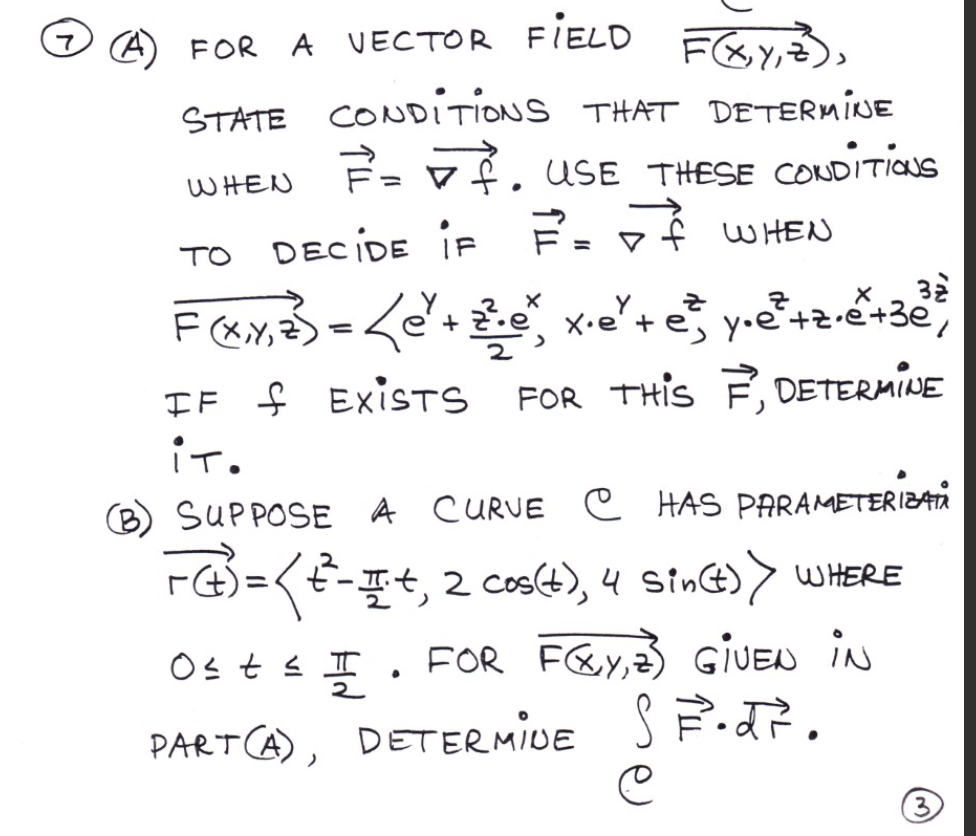 ⑦ (A) FOR A VECTOR FIELD $\overrightarrow{F(x,y,z)}$,
STATE CONDITIONS THAT DETERMINE
WHEN $\vec{F} = \overrightarrow{\nabla f}$. USE THESE CONDITIONS
TO DECIDE IF $\vec{F} = \overrightarrow{\nabla f}$ WHEN
$\overrightarrow{F(x,y,z)} = \langle e^y + \frac{z^2 \cdot e^x}{2}, x \cdot e^y + e^z, y \cdot e^z + z \cdot e^x + 3e^{3z},$
IF f EXISTS FOR THIS $\vec{F}$, DETERMINE
IT.
(B) SUPPOSE A CURVE C HAS
$\overrightarrow{r(t)} = \langle t^2 - \frac{\pi}{2} \cdot t, 2 \cos(t), 4 \sin(t) \rangle$ WHERE
$0 \le t \le \frac{\pi}{2}$. FOR $\overrightarrow{F(x,y,z)}$ GIVEN IN
PART (A), DETERMINE $\int_C \vec{F} \cdot \overrightarrow{dr}$.
③